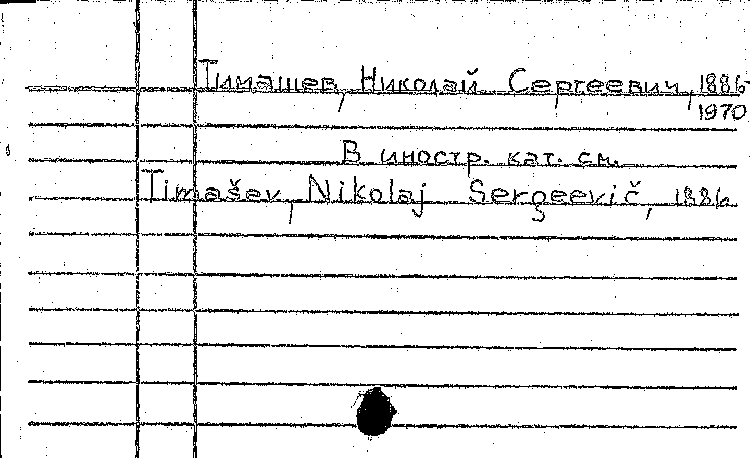 Тимашев, Николай Сергеевич, 1886-
1970
В иностр. кат. см.
Timašev, Nikolaj Sergeevič, 1886